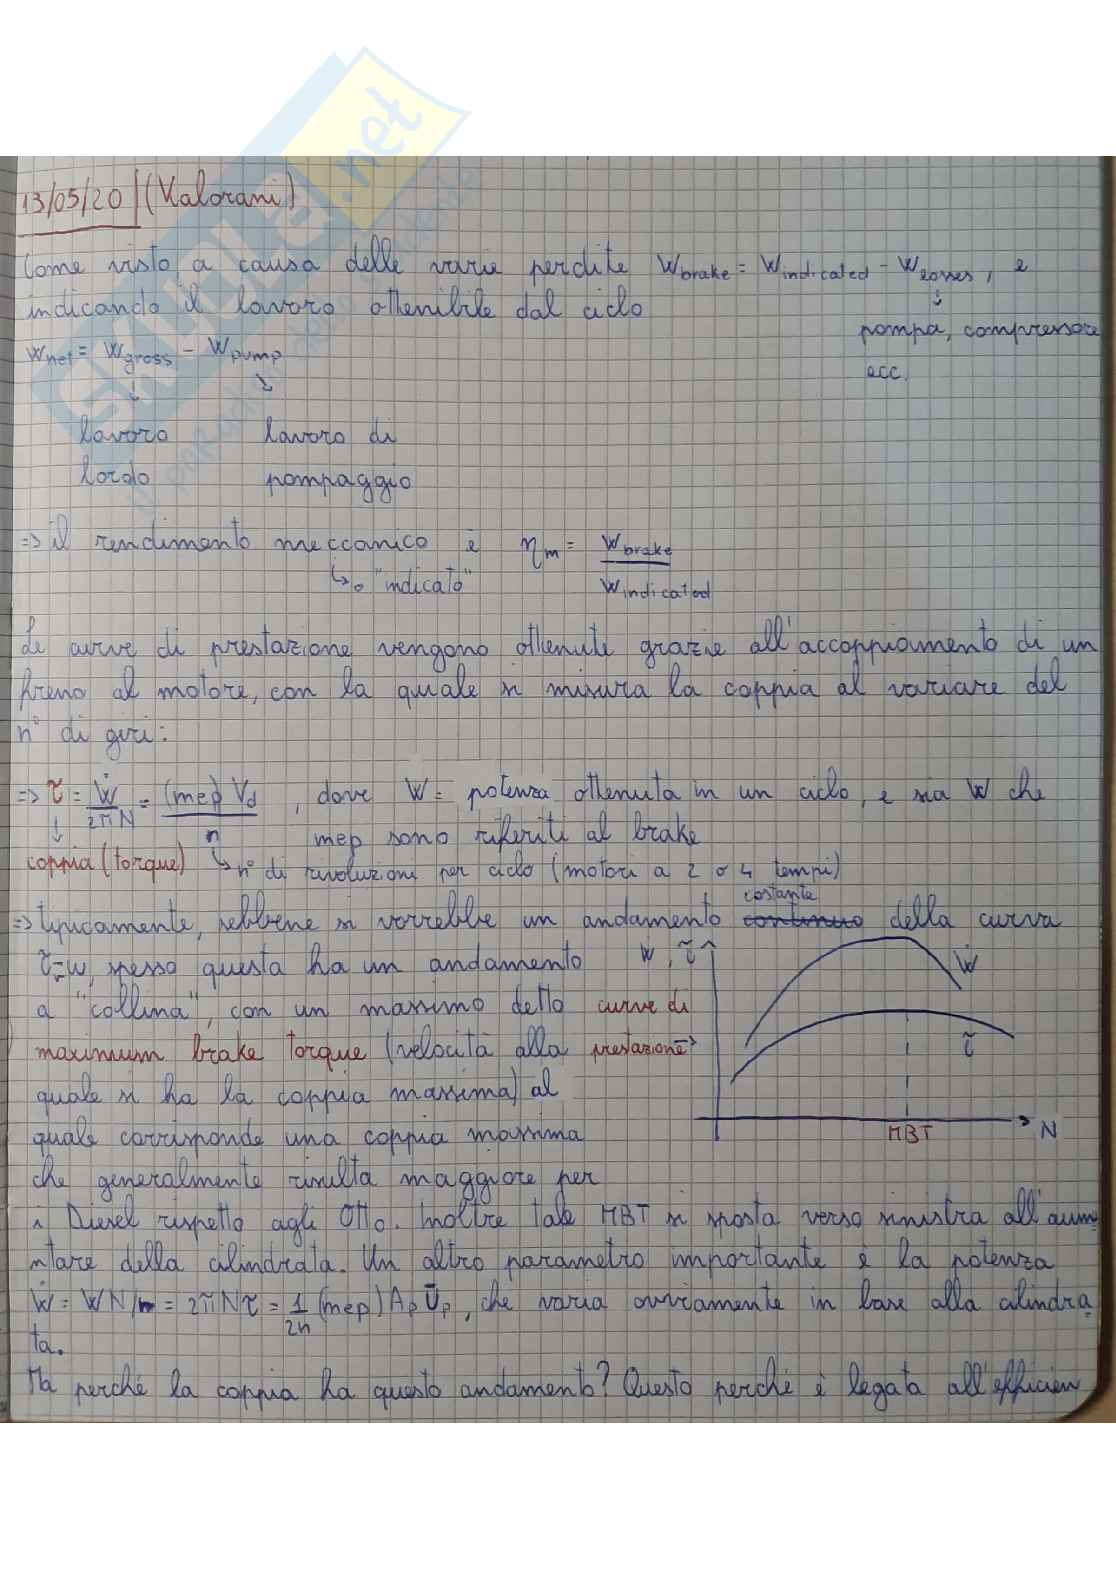 13/05/20 (Valorani)
Come visto, a causa delle varie perdite Wbrake = Windicated - Wlosses, e
indicando il lavoro ottenibile dal ciclo
pompa, compressore
ecc.
Wnet = Wgross - Wpump
lavoro lavoro di
lordo pompaggio
=> il rendimento meccanico è ηm = Wbrake / Windicated
↳ o "indicato"
Le curve di prestazione vengono ottenute grazie all'accoppiamento di un
freno al motore, con la quale si misura la coppia al variare del
n° di giri:
=> τ = Ẇ / 2πN = (mep) Vd / n, dove Ẇ = potenza ottenuta in un ciclo, e sia W che
mep sono riferiti al brake
coppia (torque) ↳ n° di rivoluzioni per ciclo (motori a 2 o 4 tempi)
costante
=> tipicamente, sebbene si vorrebbe un andamento continuo della curva
τ-ω, spesso questa ha un andamento
a "collina", con un massimo detto
maximum brake torque (velocità alla
quale si ha la coppia massima) al
quale corrisponde una coppia massima
che generalmente risulta maggiore per
curve di
prestazione →
Ẇ, τ
Ẇ
τ
MBT
N
i Diesel rispetto agli Otto. Inoltre tale MBT si sposta verso sinistra all'aume
ntare della cilindrata. Un altro parametro importante è la potenza
Ẇ = WN/n = 2πNτ = 1/2n (mep) Ap Ūp, che varia ovviamente in base alla cilindra
ta.
Ma perché la coppia ha questo andamento? Questo perché è legata all'efficien
SKUOLA.net